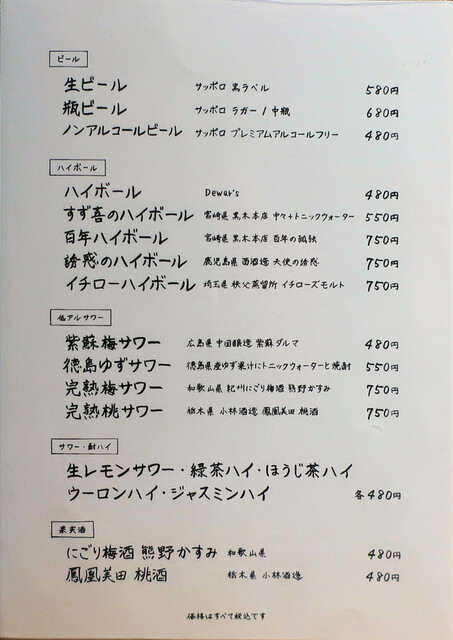 ビール
生ビール サッポロ 黒ラベル 580円
瓶ビール サッポロ ラガー / 中瓶 680円
ノンアルコールビール サッポロ プレミアムアルコールフリー 480円
ハイボール
ハイボール Dewar's 480円
すず喜のハイボール 宮崎県 黒木本店 中々+トニックウォーター 550円
百年ハイボール 宮崎県 黒木本店 百年の孤独 750円
誘惑のハイボール 鹿児島県 西酒造 天使の誘惑 750円
イチローハイボール 埼玉県 秩父蒸留所 イチローズモルト 750円
低アルサワー
紫蘇梅サワー 広島県 中国醸造 紫蘇ダルマ 480円
徳島ゆずサワー 徳島県産ゆず果汁にトニックウォーターと焼酎 550円
完熟梅サワー 和歌山県 紀州にごり梅酒 熊野かすみ 750円
完熟桃サワー 栃木県 小林酒造 鳳凰美田 桃酒 750円
サワー・酎ハイ
生レモンサワー・緑茶ハイ・ほうじ茶ハイ
ウーロンハイ・ジャスミンハイ 各480円
果実酒
にごり梅酒 熊野かすみ 和歌山県 480円
鳳凰美田 桃酒 栃木県 小林酒造 480円
価格はすべて税込です